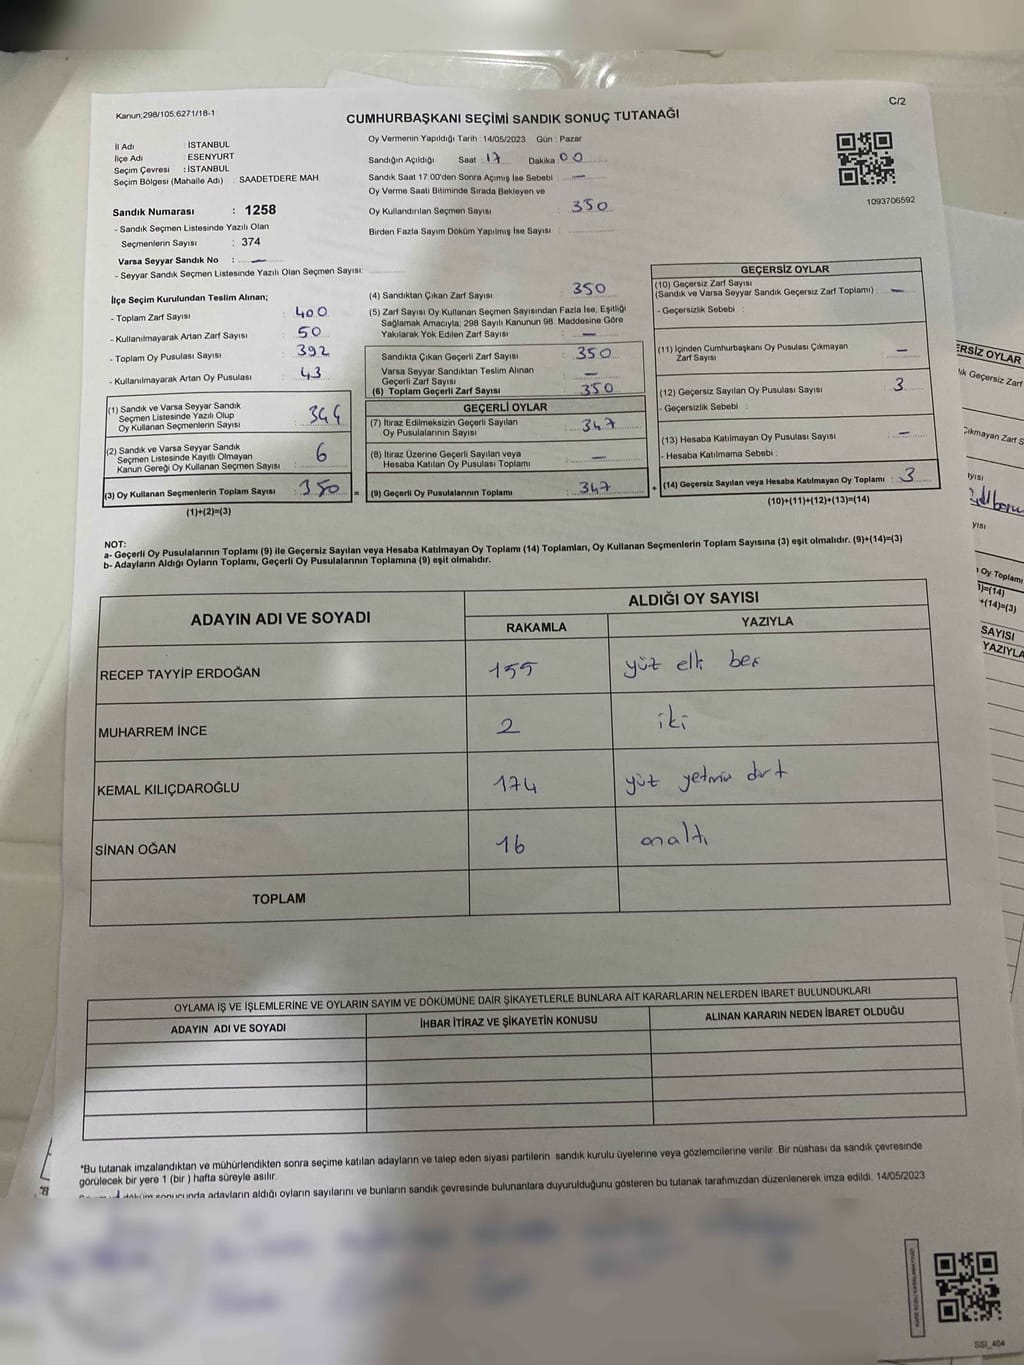 Kanun;298/105;6271/18-1
C/2
CUMHURBAŞKANI SEÇİMİ SANDIK SONUÇ TUTANAĞI
İl Adı : İSTANBUL
İlçe Adı : ESENYURT
Seçim Çevresi : İSTANBUL
Seçim Bölgesi (Mahalle Adı) : SAADETDERE MAH
Sandık Numarası : 1258
- Sandık Seçmen Listesinde Yazılı Olan
Seçmenlerin Sayısı : 374
Varsa Seyyar Sandık No : —
- Seyyar Sandık Seçmen Listesinde Yazılı Olan Seçmen Sayısı:
Oy Vermenin Yapıldığı Tarih : 14/05/2023 Gün : Pazar
Sandığın Açıldığı Saat : 17 Dakika : 00
Sandık Saat 17:00'den Sonra Açımış İse Sebebi : —
Oy Verme Saati Bitiminde Sırada Bekleyen ve
Oy Kullandırılan Seçmen Sayısı : 350
Birden Fazla Sayım Döküm Yapılmış İse Sayısı :
1093706592
İlçe Seçim Kurulundan Teslim Alınan;
- Toplam Zarf Sayısı : 400
- Kullanılmayarak Artan Zarf Sayısı : 50
- Toplam Oy Pusulası Sayısı : 392
- Kullanılmayarak Artan Oy Pusulası : 43
(1) Sandık ve Varsa Seyyar Sandık
Seçmen Listesinde Yazılı Olup
Oy Kullanan Seçmenlerin Sayısı : 344
(2) Sandık ve Varsa Seyyar Sandık
Seçmen Listesinde Kayıtlı Olmayan
Kanun Gereği Oy Kullanan Seçmen Sayısı : 6
(3) Oy Kullanan Seçmenlerin Toplam Sayısı : 350 =
(1)+(2)=(3)
(4) Sandıktan Çıkan Zarf Sayısı : 350
(5) Zarf Sayısı Oy Kullanan Seçmen Sayısından Fazla İse, Eşitliği
Sağlamak Amacıyla; 298 Sayılı Kanunun 98. Maddesine Göre
Yakılarak Yok Edilen Zarf Sayısı : —
Sandıkta Çıkan Geçerli Zarf Sayısı : 350
Varsa Seyyar Sandıktan Teslim Alınan
Geçerli Zarf Sayısı : —
(6) Toplam Geçerli Zarf Sayısı : 350
GEÇERLİ OYLAR
(7) İtiraz Edilmeksizin Geçerli Sayılan
Oy Pusulalarının Sayısı : 347
(8) İtiraz Üzerine Geçerli Sayılan veya
Hesaba Katılan Oy Pusulası Toplamı : —
(9) Geçerli Oy Pusulalarının Toplamı : 347 +
GEÇERSİZ OYLAR
(10) Geçersiz Zarf Sayısı
(Sandık ve Varsa Seyyar Sandık Geçersiz Zarf Toplamı) : —
- Geçersizlik Sebebi :
(11) İçinden Cumhurbaşkanı Oy Pusulası Çıkmayan
Zarf Sayısı : —
(12) Geçersiz Sayılan Oy Pusulası Sayısı : 3
- Geçersizlik Sebebi :
(13) Hesaba Katılmayan Oy Pusulası Sayısı : —
- Hesaba Katılmama Sebebi :
(14) Geçersiz Sayılan veya Hesaba Katılmayan Oy Toplamı : 3
(10)+(11)+(12)+(13)=(14)
NOT:
a- Geçerli Oy Pusulalarının Toplamı (9) ile Geçersiz Sayılan veya Hesaba Katılmayan Oy Toplamı (14) Toplamları, Oy Kullanan Seçmenlerin Toplam Sayısına (3) eşit olmalıdır. (9)+(14)=(3)
b- Adayların Aldığı Oyların Toplamı, Geçerli Oy Pusulalarının Toplamına (9) eşit olmalıdır.
ADAYIN ADI VE SOYADI
ALDIĞI OY SAYISI
RAKAMLA YAZIYLA
RECEP TAYYİP ERDOĞAN 155 yüz elli beş
MUHARREM İNCE 2 iki
KEMAL KILIÇDAROĞLU 174 yüz yetmiş dört
SİNAN OĞAN 16 onaltı
TOPLAM
OYLAMA İŞ VE İŞLEMLERİNE VE OYLARIN SAYIM VE DÖKÜMÜNE DAİR ŞİKAYETLERLE BUNLARA AİT KARARLARIN NELERDEN İBARET BULUNDUKLARI
ADAYIN ADI VE SOYADI İHBAR İTİRAZ VE ŞİKAYETİN KONUSU ALINAN KARARIN NEDEN İBARET OLDUĞU
*Bu tutanak imzalandıktan ve mühürlendikten sonra seçime katılan adayların ve talep eden siyasi partilerin sandık kurulu üyelerine veya gözlemcilerine verilir. Bir nüshası da sandık çevresinde
görülecek bir yere 1 (bir) hafta süreyle asılır.
döküm sonucunda adayların aldığı oyların sayılarını ve bunların sandık çevresinde bulunanlara duyurulduğunu gösteren bu tutanak tarafımızdan düzenlenerek imza edildi. 14/05/2023
SSI_404
ERSİZ OYLAR
k Geçersiz Zarf
Çıkmayan Zarf S
yısı
yısı
Oy Toplamı
)=(14)
+(14)=(3)
SAYISI
YAZIYLA